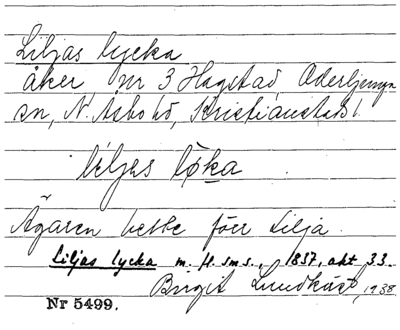 Liljas lycka
åker nr 3 Hagstad Oderljunga
sn, N. Åsbo hd, Kristianstads l.
liljas löka
Ägaren hette förr Lilja.
Liljas lycka m. fl. sms., 1837, akt 33.
Birgit Lundkvist, 1938
Nr 5499.